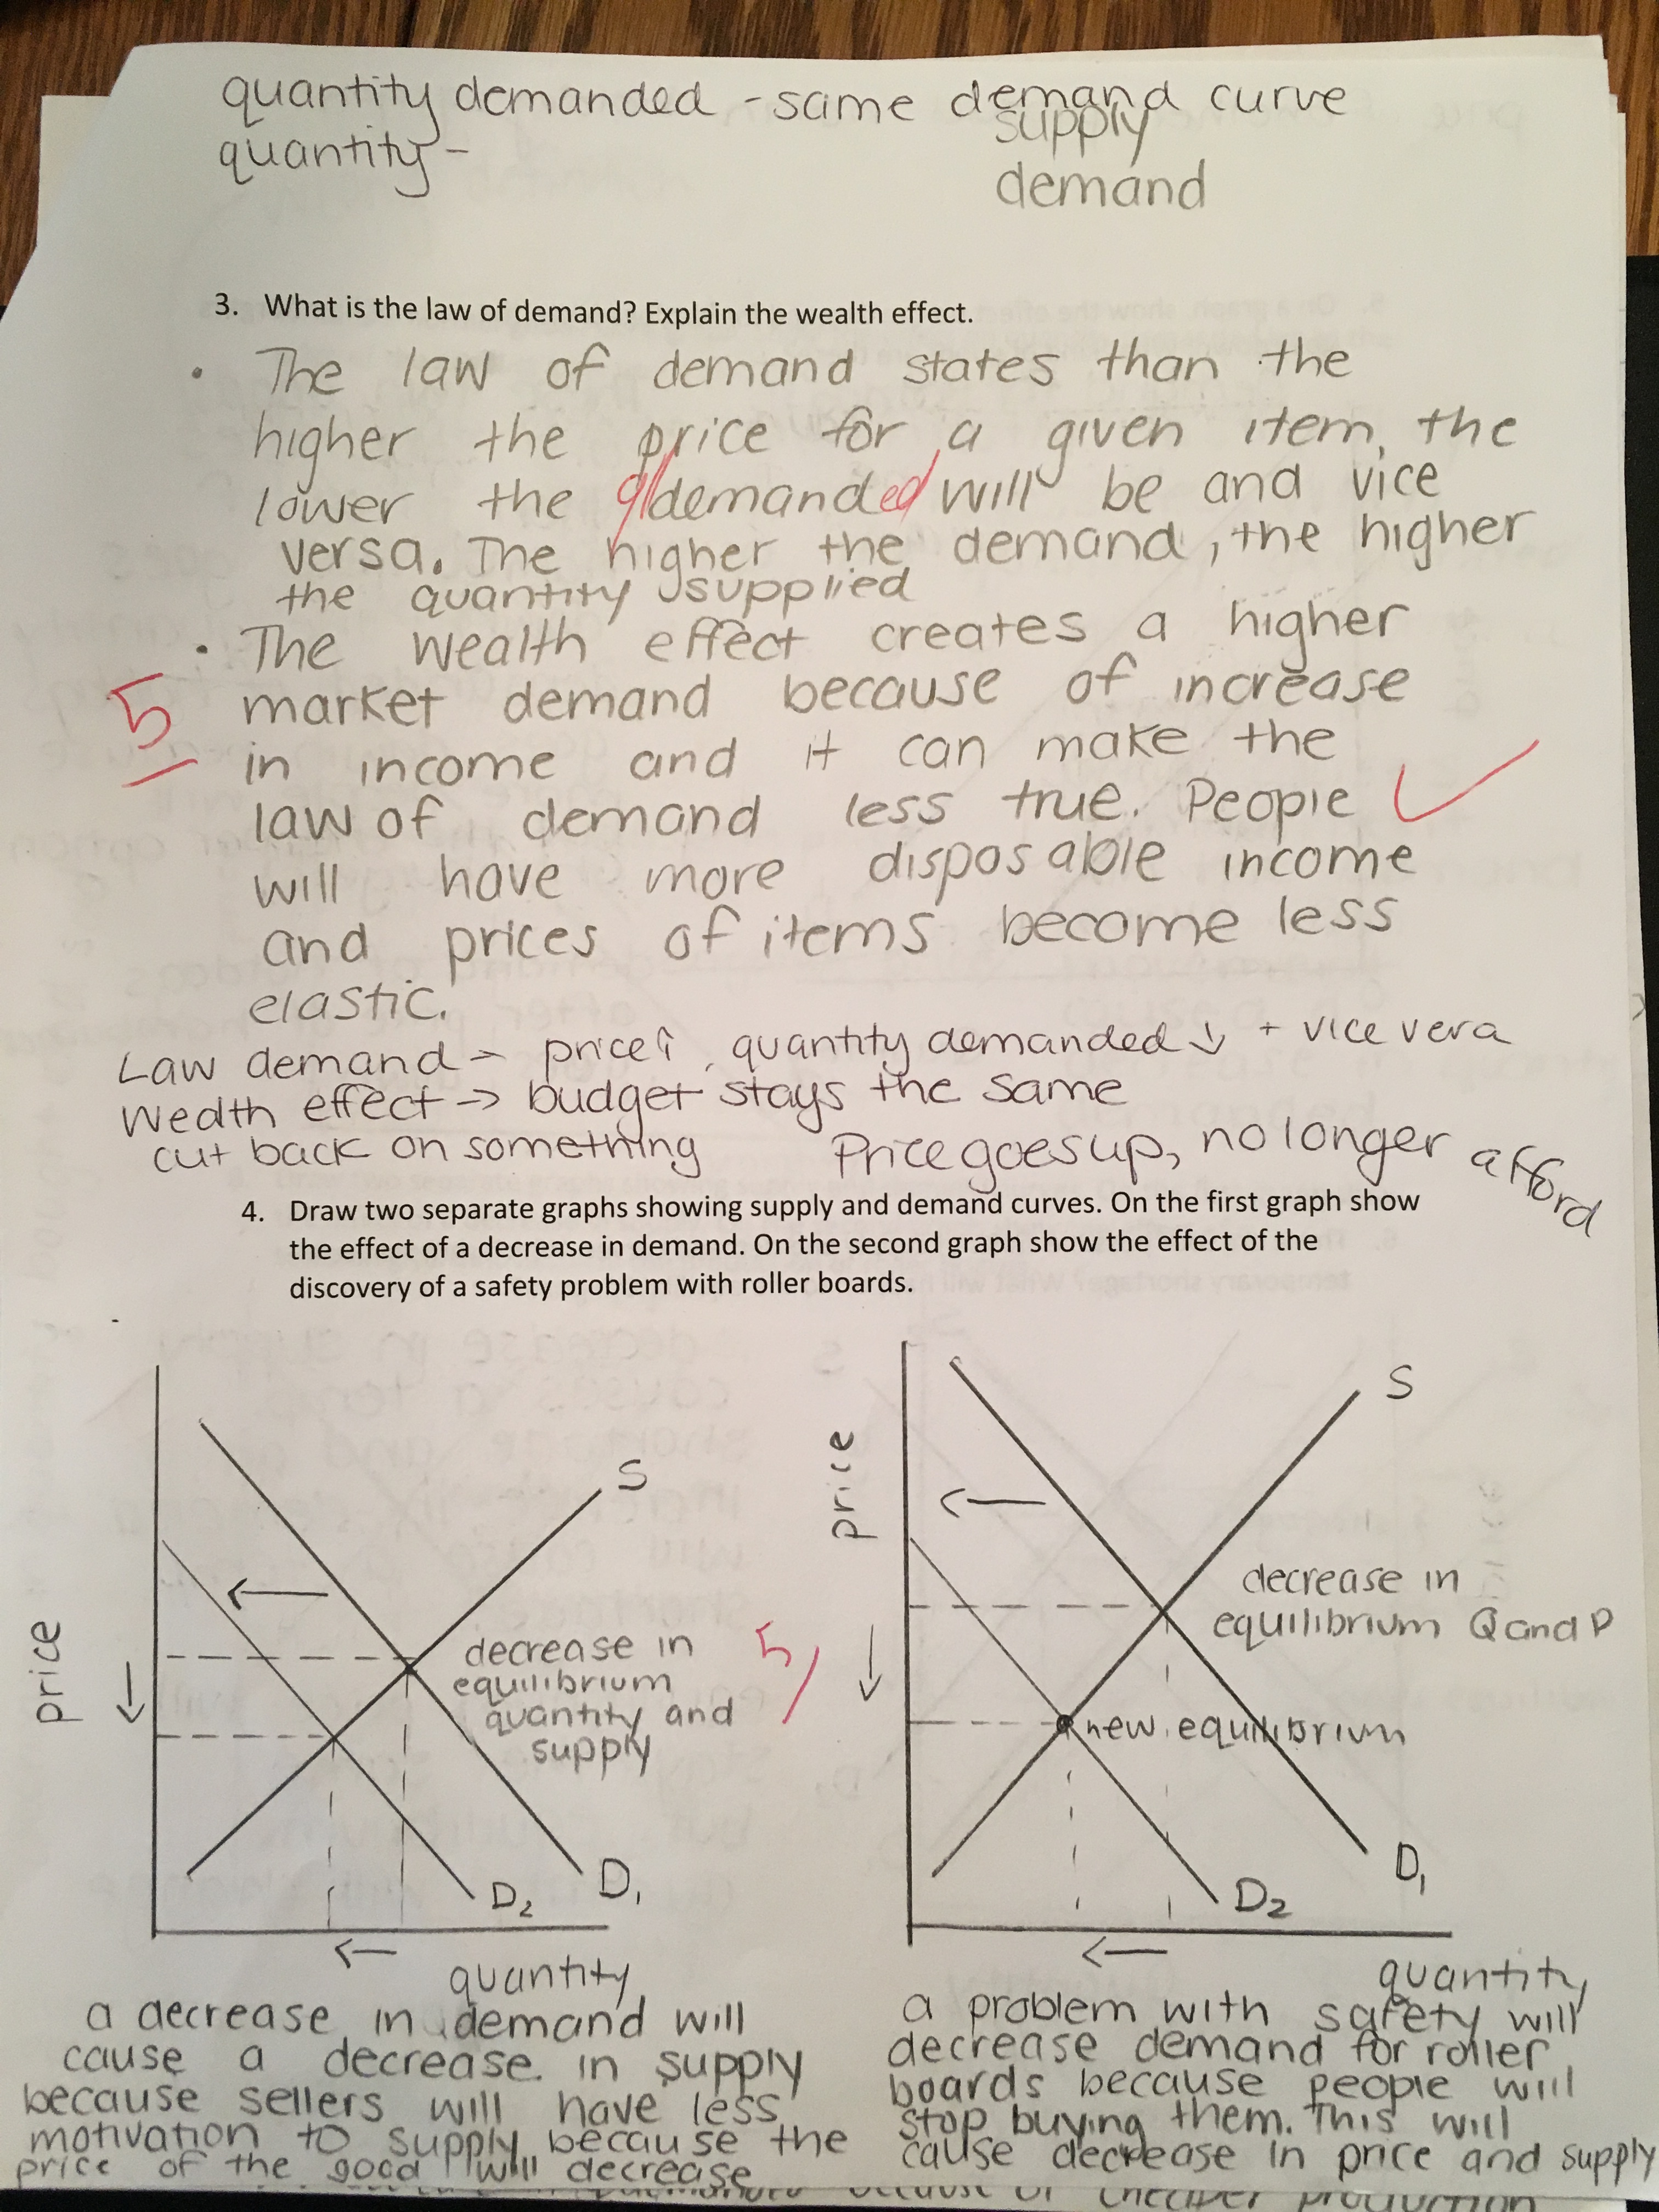 quantity demanded - same demand curve
supply
quantity -
demand
3. What is the law of demand? Explain the wealth effect.
• The law of demand states than the
higher the price for a given item, the
lower the q demanded will be and vice
versa. The higher the demand, the higher
the quantity supplied
• The wealth effect creates a higher
5
market demand because of increase
in income and it can make the
law of demand less true. People ✓
will have more disposable income
and prices of items become less
elastic.
Law demand → price↑, quantity demanded ↓ + vice vera
Wealth effect → budget stays the same
cut back on something Price goes up, no longer afford
4. Draw two separate graphs showing supply and demand curves. On the first graph show
the effect of a decrease in demand. On the second graph show the effect of the
discovery of a safety problem with roller boards.
price
←
S
decrease in
equilibrium
quantity and
supply
↓
D₂
D₁
←
quantity
a decrease in demand will
cause a decrease in supply
because sellers will have less
motivation to supply because the
price of the good will decrease
5/
price
←
S
decrease in
equilibrium Q and P
↓
new equilibrium
D₁
D₂
←
quantity
a problem with safety will
decrease demand for roller
boards because people will
stop buying them. This will
cause decrease in price and supply
because of cheaper production